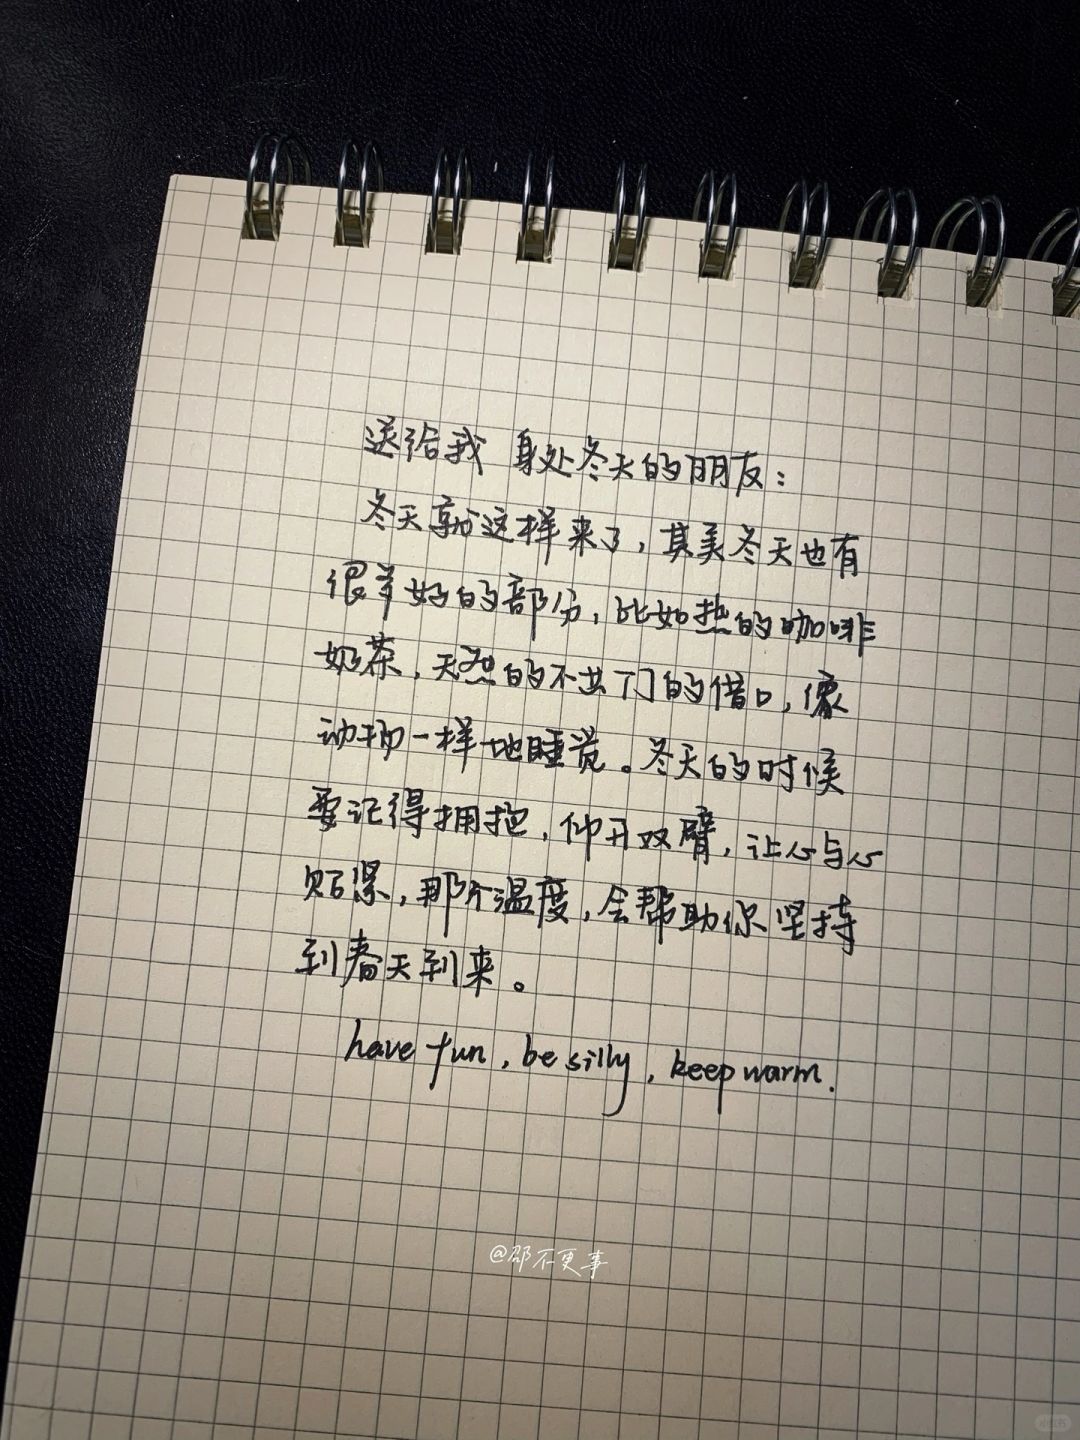 送给我 身处冬天的朋友：
冬天就这样来了，其实冬天也有
很美好的部分，比如热的咖啡
奶茶，天然的不出门的借口，像
动物一样地睡觉。冬天的时候
要记得拥抱，伸开双臂，让心与心
贴紧，那个温度，会帮助你坚持
到春天到来。
have fun, be silly, keep warm.
@邵不更事
小红书